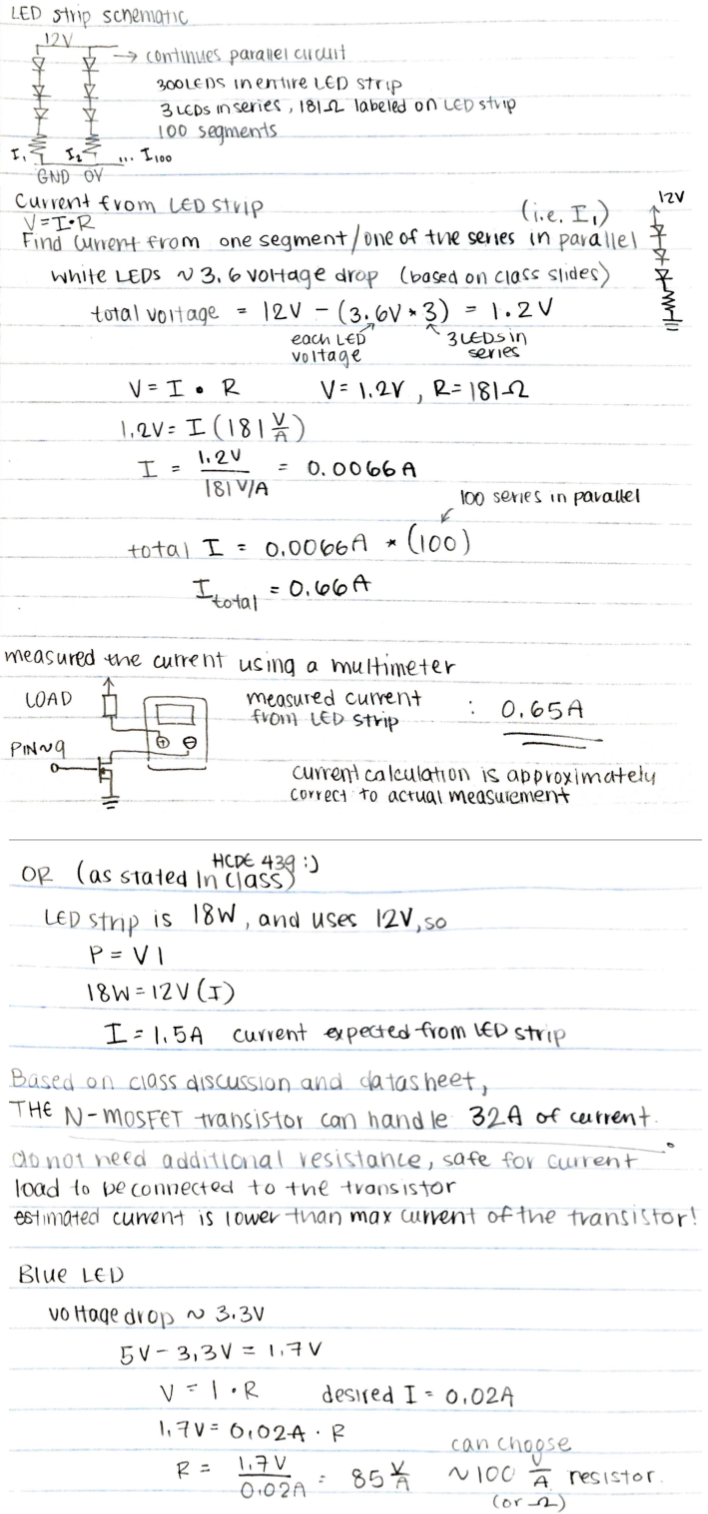 LED strip schematic
12V
→ continues parallel circuit
300 LEDS in entire LED strip
3 LEDs in series, 181Ω labeled on LED strip
100 segments
I₁ I₂ ... I₁₀₀
GND 0V
Current from LED strip
V=I•R
(i.e. I₁)
12V
Find current from one segment/one of the series in parallel
White LEDs ~ 3.6 voltage drop (based on class slides)
total voltage = 12V - (3.6V * 3) = 1.2V
each LED voltage
3 LEDs in series
V = I • R V = 1.2V, R = 181Ω
1.2V = I (181 V/A)
I = 1.2V / 181 V/A = 0.0066A
100 series in parallel
total I = 0.0066A * (100)
I total = 0.66A
measured the current using a multimeter
LOAD
+ -
PIN ~9
measured current
from LED strip : 0.65A
current calculation is approximately
correct to actual measurement
HCDE 439 :)
OR (as stated in class)
LED strip is 18W, and uses 12V, so
P = VI
18W = 12V (I)
I = 1.5A current expected from LED strip
Based on class discussion and datasheet,
THE N-MOSFET transistor can handle 32A of current.
do not need additional resistance, safe for current
load to be connected to the transistor
estimated current is lower than max current of the transistor!
Blue LED
voltage drop ~ 3.3V
5V - 3.3V = 1.7V
V = I • R desired I = 0.02A
1.7V = 0.02A • R
R = 1.7V / 0.02A = 85 V/A
can choose
~100 V/A resistor.
(or Ω)